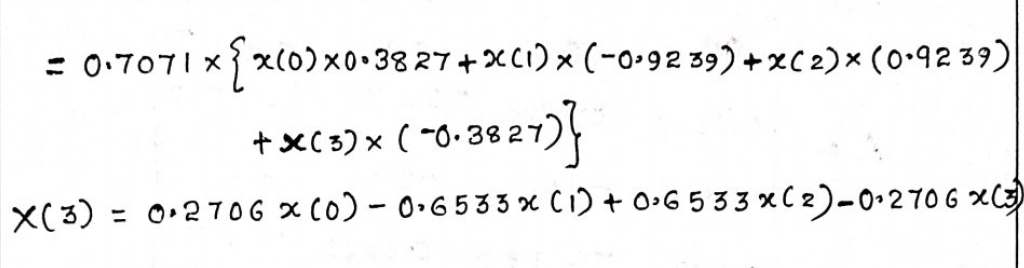 = 0.7071 × { x(0) × 0.3827 + x(1) × (-0.9239) + x(2) × (0.9239)
+ x(3) × (-0.3827) }
X(3) = 0.2706 x(0) - 0.6533 x(1) + 0.6533 x(2) - 0.2706 x(3)